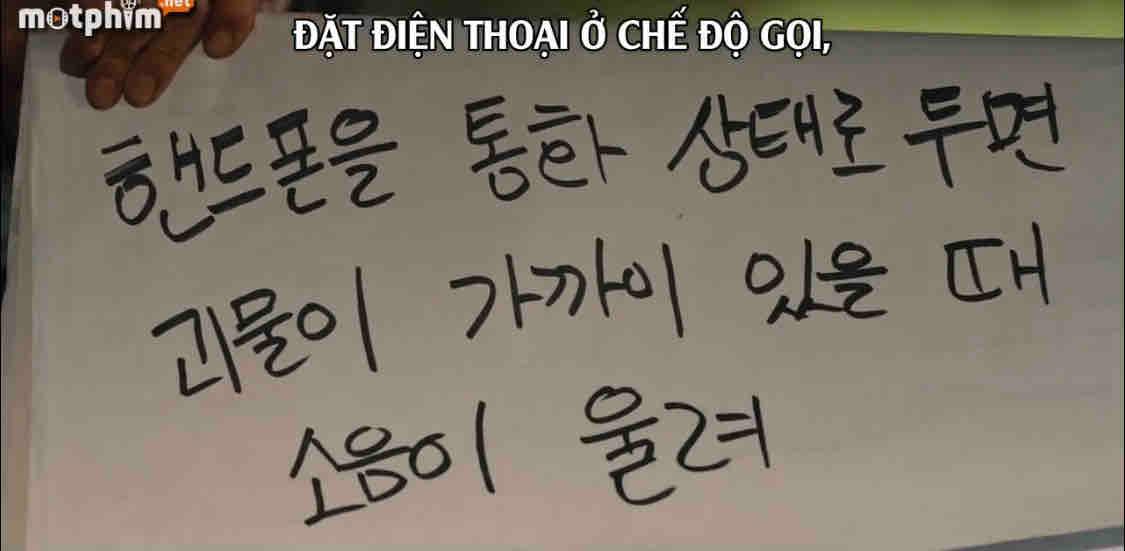 motphim.net
ĐẶT ĐIỆN THOẠI Ở CHẾ ĐỘ GỌI,
핸드폰을 통화 상태로 두면
괴물이 가까이 있을 때
소음이 울려